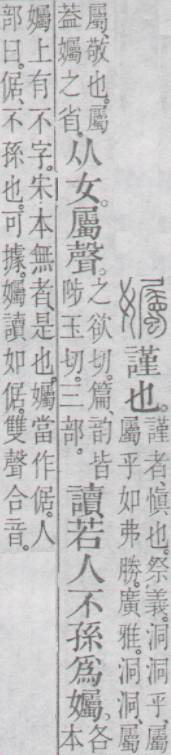 孎 謹也。謹者、愼也。祭義。洞洞乎、屬
屬乎如弗勝。廣雅。洞洞、屬
屬、敬也。屬
葢孎之省。
从女。屬聲。
之欲切。篇、韵皆
陟玉切。三部。
讀若人不孫爲孎。各
本
孎上有不字。宋本無者、是也。孎當作倨。人
部曰。倨、不孫也。可據。孎讀如倨。雙聲合音。